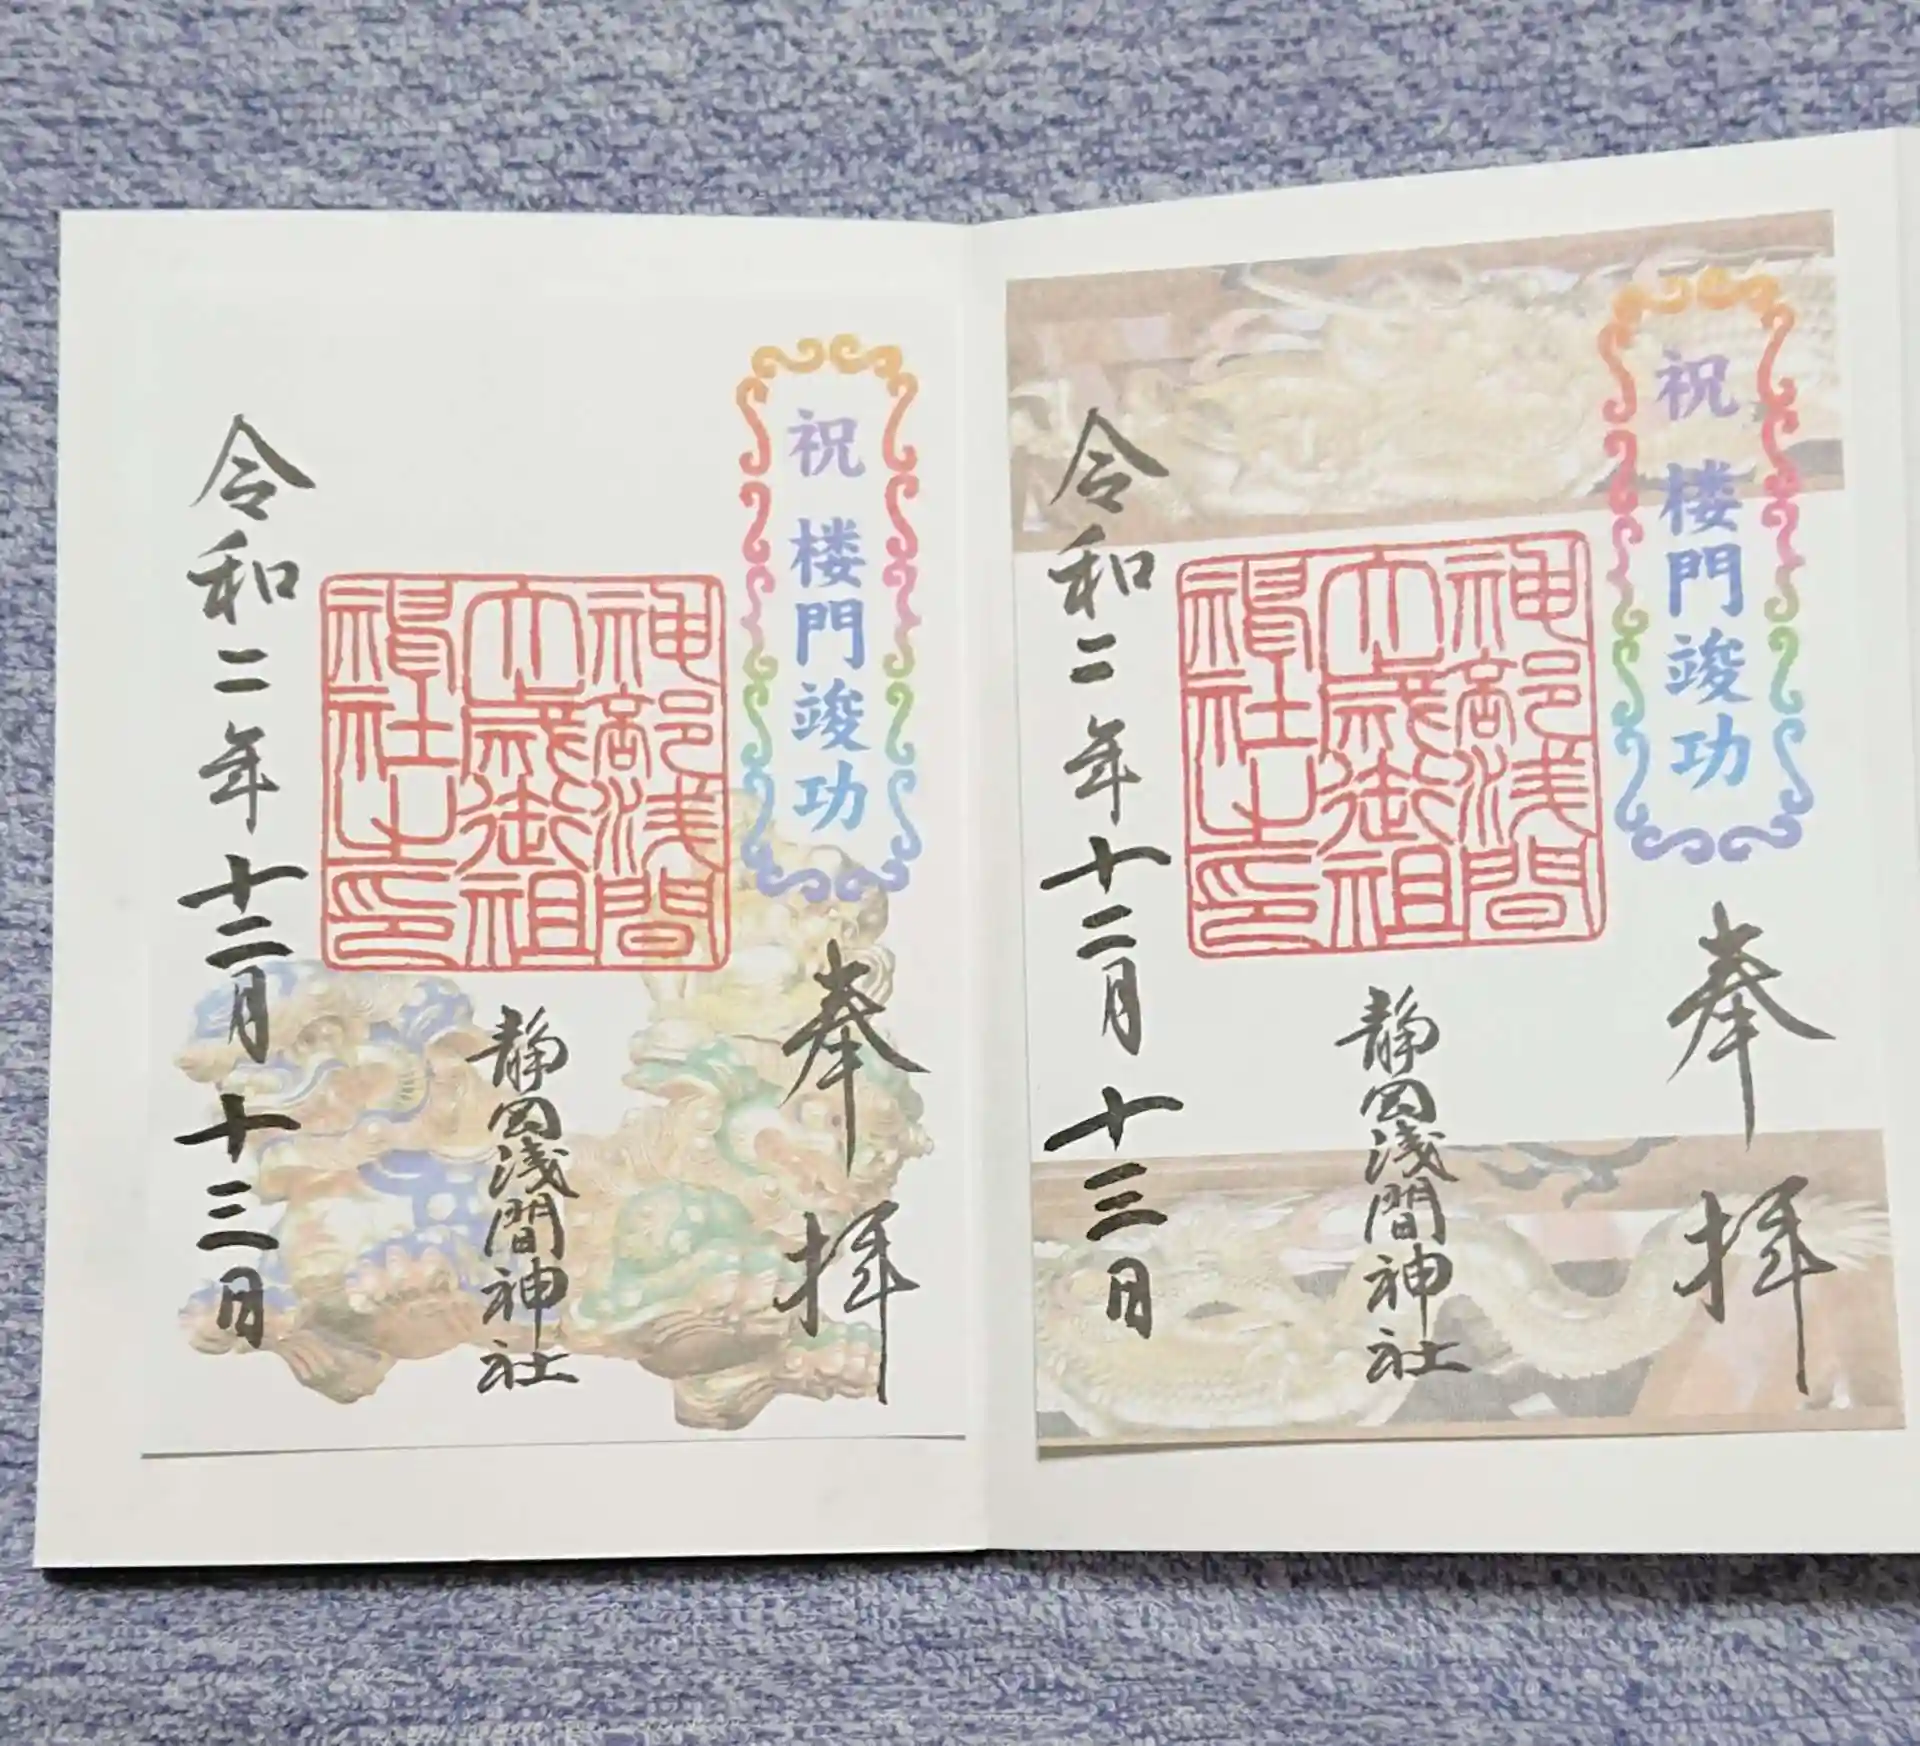 祝 楼門竣功
奉拝
神部浅間
大歳御祖
神社之印
静岡浅間神社
令和二年十二月十三日
祝 楼門竣功
奉拝
神部浅間
大歳御祖
神社之印
静岡浅間神社
令和二年十二月十三日